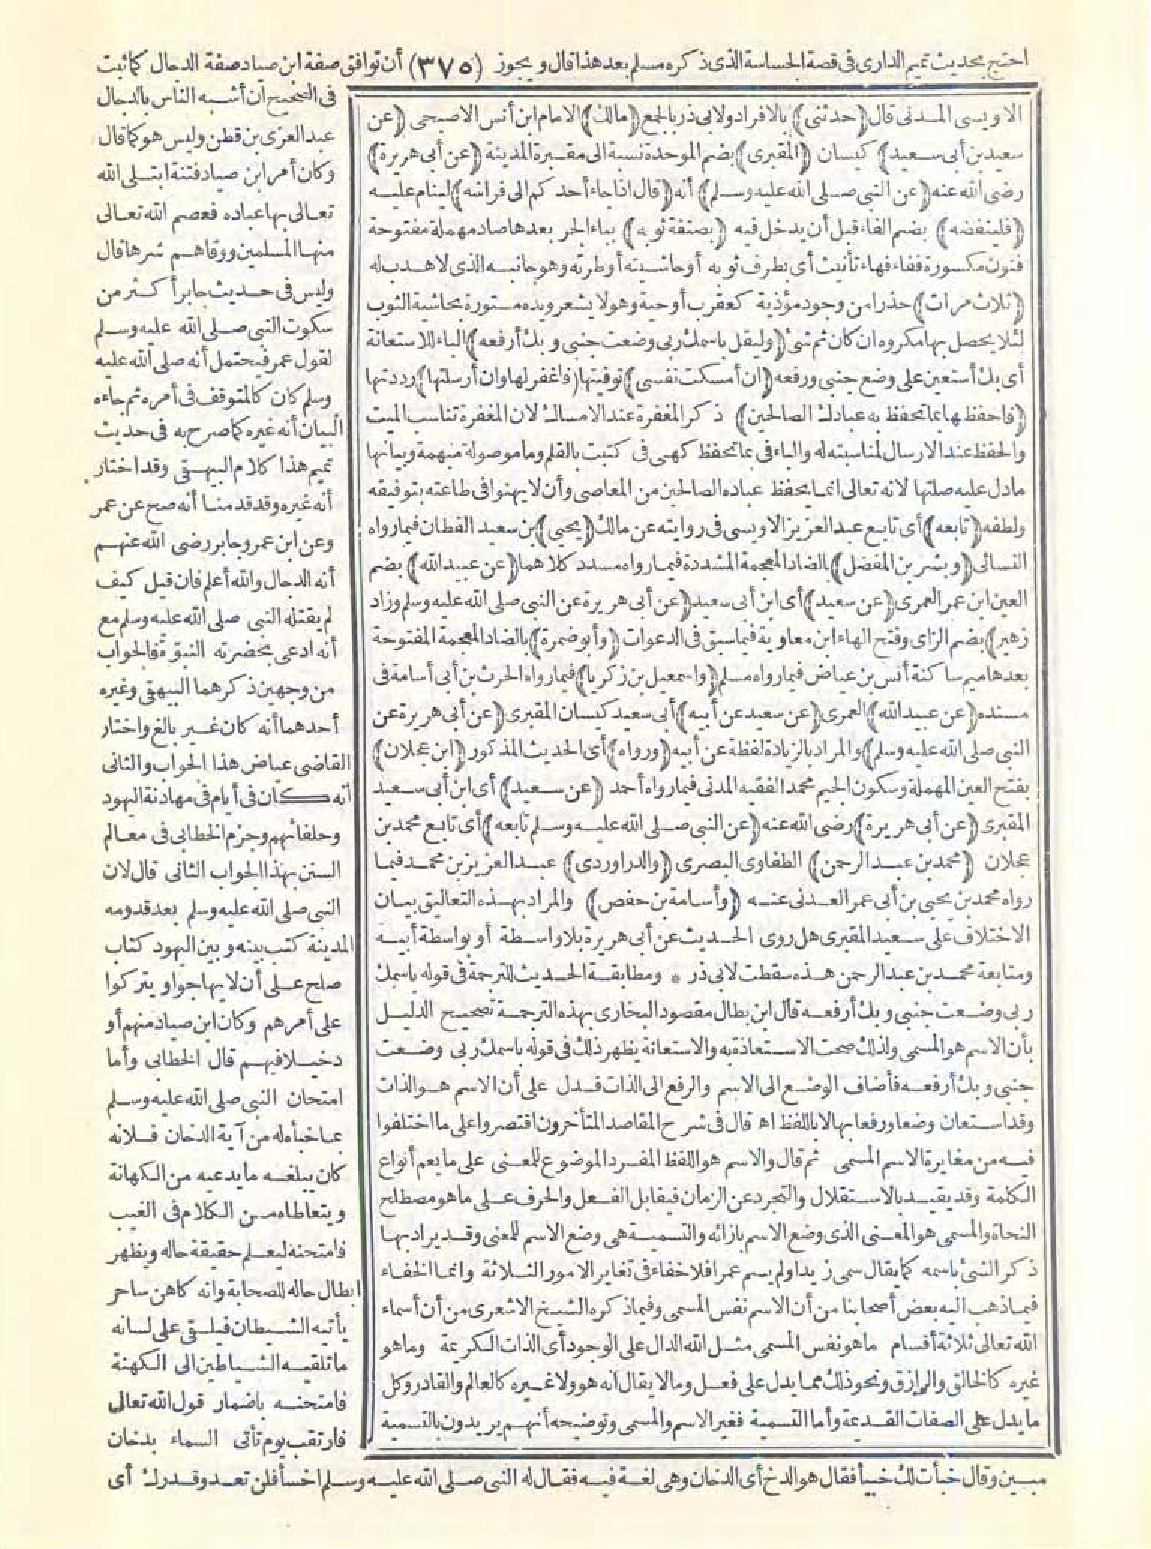 احتج بحديث تميم الدارى فى قصة الجساسة الذى ذكره مسلم بعد هذا قال ويجوز (٣٧٥) أن توافق صفة ابن صياد صفة الدجال كما ثبت
فى الصحيح أن أشبه الناس بالدجال
عبد العزى بن قطن وليس هو كما قال
وكان أمر ابن صياد فتنة ابتلى الله
تعالى بها عباده فعصم الله تعالى
منها المسلمين ووقاهم شرها قال
وليس فى حديث جابر أكثر من
سكوت النبى صلى الله عليه وسلم
لقول عمر فيحتمل أنه صلى الله عليه
وسلم كان كالمتوقف فى أمره ثم جاءه
البيان أنه غيره كما صرح به فى حديث
تميم هذا كلام البيهقى وقد اختار
أنه غيره وقد قدمنا أنه صح عن عمر
وعن ابن عمر وجابر رضى الله عنهم
أنه الدجال والله أعلم فان قيل كيف
لم يقتله النبى صلى الله عليه وسلم مع
أنه ادعى بحضرته النبوة فالجواب
من وجهين ذكرهما البيهقى وغيره
أحدهما أنه كان غير بالغ واختار
القاضى عياض هذا الجواب والثانى
أنه كان فى أيام مهادنة اليهود
وحلفائهم وجزم الخطابى فى معالم
السنن بهذا الجواب الثانى قال لان
النبى صلى الله عليه وسلم بعد قدومه
المدينة كتب بينه وبين اليهود كتاب
صلح على أن لا يهاجوا ويتركوا
على أمرهم وكان ابن صياد منهم أو
دخيلا فيهم قال الخطابى وأما
امتحان النبى صلى الله عليه وسلم
بما خبأه له من آية الدخان فلانه
كان يبلغه ما يدعيه من الكهانة
ويتعاطاه من الكلام فى الغيب
فامتحنه ليعلم حقيقة حاله ويظهر
ابطال حاله للصحابة وانه كاهن ساحر
يأتيه الشيطان فيلقى على لسانه
ما تلقيه الشياطين الى الكهنة
فامتحنه باضمار قول الله تعالى
فارتقب يوم تأتى السماء بدخان
مبين وقال خبأت لك خبيأ فقال هو الدخ أى الدخان وهى لغة فيه فقال له النبى صلى الله عليه وسلم اخسأ فلن تعدو قدرك أى
الاويسى المدنى قال (حدثنى) بالافراد ولابى ذر بالجمع (مالك) الامام ابن أنس الاصبحى (عن
سعيد بن أبى سعيد) كيسان (المقبرى) بضم الموحدة نسبة الى مقبرة المدينة (عن أبى هريرة)
رضى الله عنه (عن النبى صلى الله عليه وسلم) أنه (قال اذا جاء أحدكم الى فراشه) لينام عليه
(فلينفضه) بضم الفاء قبل أن يدخل فيه (بصنفة ثوبه) بباء الجر بعدها صاد مهملة مفتوحة
فنون مكسورة ففاء فهاء تأنيث أى بطرف ثوبه أو حاشيته أو طرته وهو جانبه الذى لا هدب له
(ثلاث مرات) حذرا من وجود مؤذية كعقرب أو حية وهو لا يشعر ويده مستورة بحاشية الثوب
لئلا يحصل بها مكروه ان كان ثم شئ (وليقل باسمك ربى وضعت جنبى وبك أرفعه) الباء للاستعانة
أى بك أستعين على وضع جنبى ورفعه (ان أمسكت نفسى) توفيتها (فاغفر لها وان أرسلتها) رددتها
(فاحفظها بما تحفظ به عبادك الصالحين) ذكر المغفرة عند الامساك لان المغفرة تناسب الميت
والحفظ عند الارسال لمناسبته له والباء فى بما تحفظ كهى فى كتبت بالقلم وما موصولة مبهمة وبيانها
ما دل عليه صلتها لانه تعالى انما يحفظ عباده الصالحين من المعاصى وأن لا يهنوا فى طاعته بتوفيقه
ولطفه (تابعه) أى تابع عبد العزيز الاويسى فى روايته عن مالك (يحيى) بن سعيد القطان فيما رواه
النسائى (وبشر بن المفضل) بالضاد المعجمة المشددة فيما رواه مسدد كلاهما (عن عبيد الله) بضم
العين ابن عمر العمرى (عن سعيد) أى ابن أبى سعيد (عن أبى هريرة عن النبى صلى الله عليه وسلم وزاد
زهير) بضم الزاى وفتح الهاء ابن معاوية فيما سبق فى الدعوات (وأبو ضمرة) بالضاد المعجمة المفتوحة
بعدها ميم ساكنة أنس بن عياض فيما رواه مسلم (واسمعيل بن زكريا) فيما رواه الحرث بن أبى أسامة فى
مسنده (عن عبيد الله) العمرى (عن سعيد عن أبيه) أبى سعيد كيسان المقبرى (عن أبى هريرة عن
النبى صلى الله عليه وسلم) والمراد بالزيادة لفظة عن أبيه (ورواه) أى الحديث المذكور (ابن عجلان)
بفتح العين المهملة وسكون الجيم محمد الفقيه المدنى فيما رواه أحمد (عن سعيد) أى ابن أبى سعيد
المقبرى (عن أبى هريرة) رضى الله عنه (عن النبى صلى الله عليه وسلم تابعه) أى تابع محمد بن
عجلان (محمد بن عبد الرحمن) الطفاوى البصرى (والدراوردى) عبد العزيز بن محمد فيما
رواه محمد بن يحيى بن أبى عمر العدنى عنه (وأسامة بن حفص) والمراد بهذه التعاليق بيان
الاختلاف على سعيد المقبرى هل روى الحديث عن أبى هريرة بلا واسطة أو بواسطة أبيه
ومتابعة محمد بن عبد الرحمن هذه سقطت لابى ذر * ومطابقة الحديث للترجمة فى قوله باسمك
ربى وضعت جنبى وبك أرفعه قال ابن بطال مقصود البخارى بهذه الترجمة تصحيح الدليل
بأن الاسم هو المسمى ولذلك صحت الاستعاذة به والاستعانة يظهر ذلك فى قوله باسمك ربى وضعت
جنبى وبك أرفعه فأضاف الوضع الى الاسم والرفع الى الذات فدل على أن الاسم هو الذات
وقد استعان وضعا ورفعا بها لا باللفظ اه قال فى شرح المقاصد المتأخرون اقتصروا على ما اختلفوا
فيه من مغايرة الاسم المسمى ثم قال والاسم هو اللفظ المفرد الموضوع للمعنى على ما يعم أنواع
الكلمة وقد يقيد بالاستقلال والتجرد عن الزمان فيقابل الفعل والحرف على ما هو مصطلح
النحاة والمسمى هو المعنى الذى وضع الاسم بازائه والتسمية هى وضع الاسم للمعنى وقد يراد بها
ذكر الشئ باسمه كما يقال سمى زيدا ولم يسم عمرا فلا خفاء فى تغاير الامور الثلاثة وانما الخفاء
فيما ذهب اليه بعض أصحابنا من أن الاسم نفس المسمى وفيما ذكره الشيخ الاشعرى من أن أسماء
الله تعالى ثلاثة أقسام ما هو نفس المسمى مثل الله الدال على الوجود أى الذات الكريمة وما هو
غيره كالخالق والرازق ونحو ذلك مما يدل على فعل وما لا يقال انه هو ولا غيره كالعالم والقادر وكل
ما يدل على الصفات القديمة وأما التسمية فغير الاسم والمسمى وتوضيحه أنهم يريدون بالتسمية